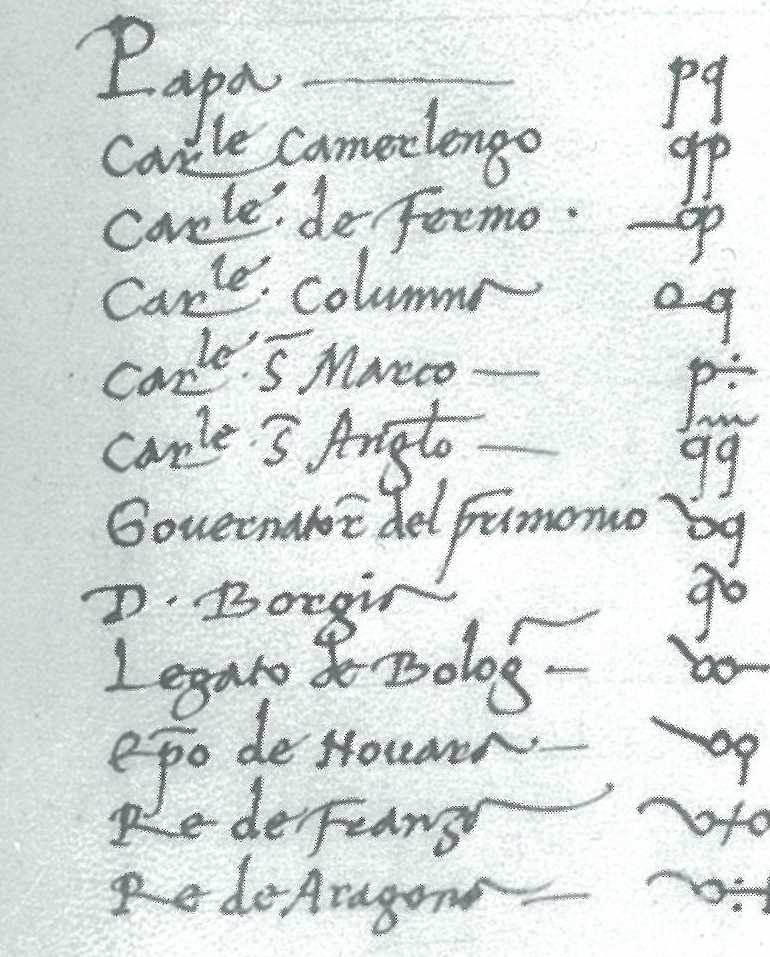 Papa — pq
Carle Camerlengo qp
Carle. de Fermo . —op
Carle. Columna o-q
Carle. S̄ Marco — p÷
Carle. S̄ Anglo — qq
Gouernator del oq
D. Borgia qo
Legato de Bolog — oo—
Ep̄o de Nouara — oq
Re de Franza o+o
Re de Aragona — o÷